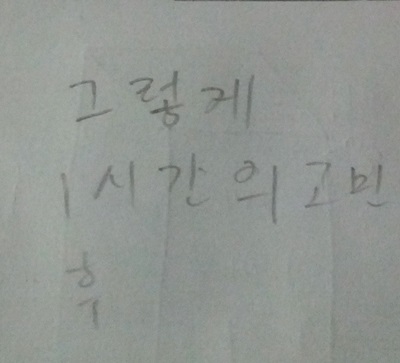 그렇게
1시간의고민
후